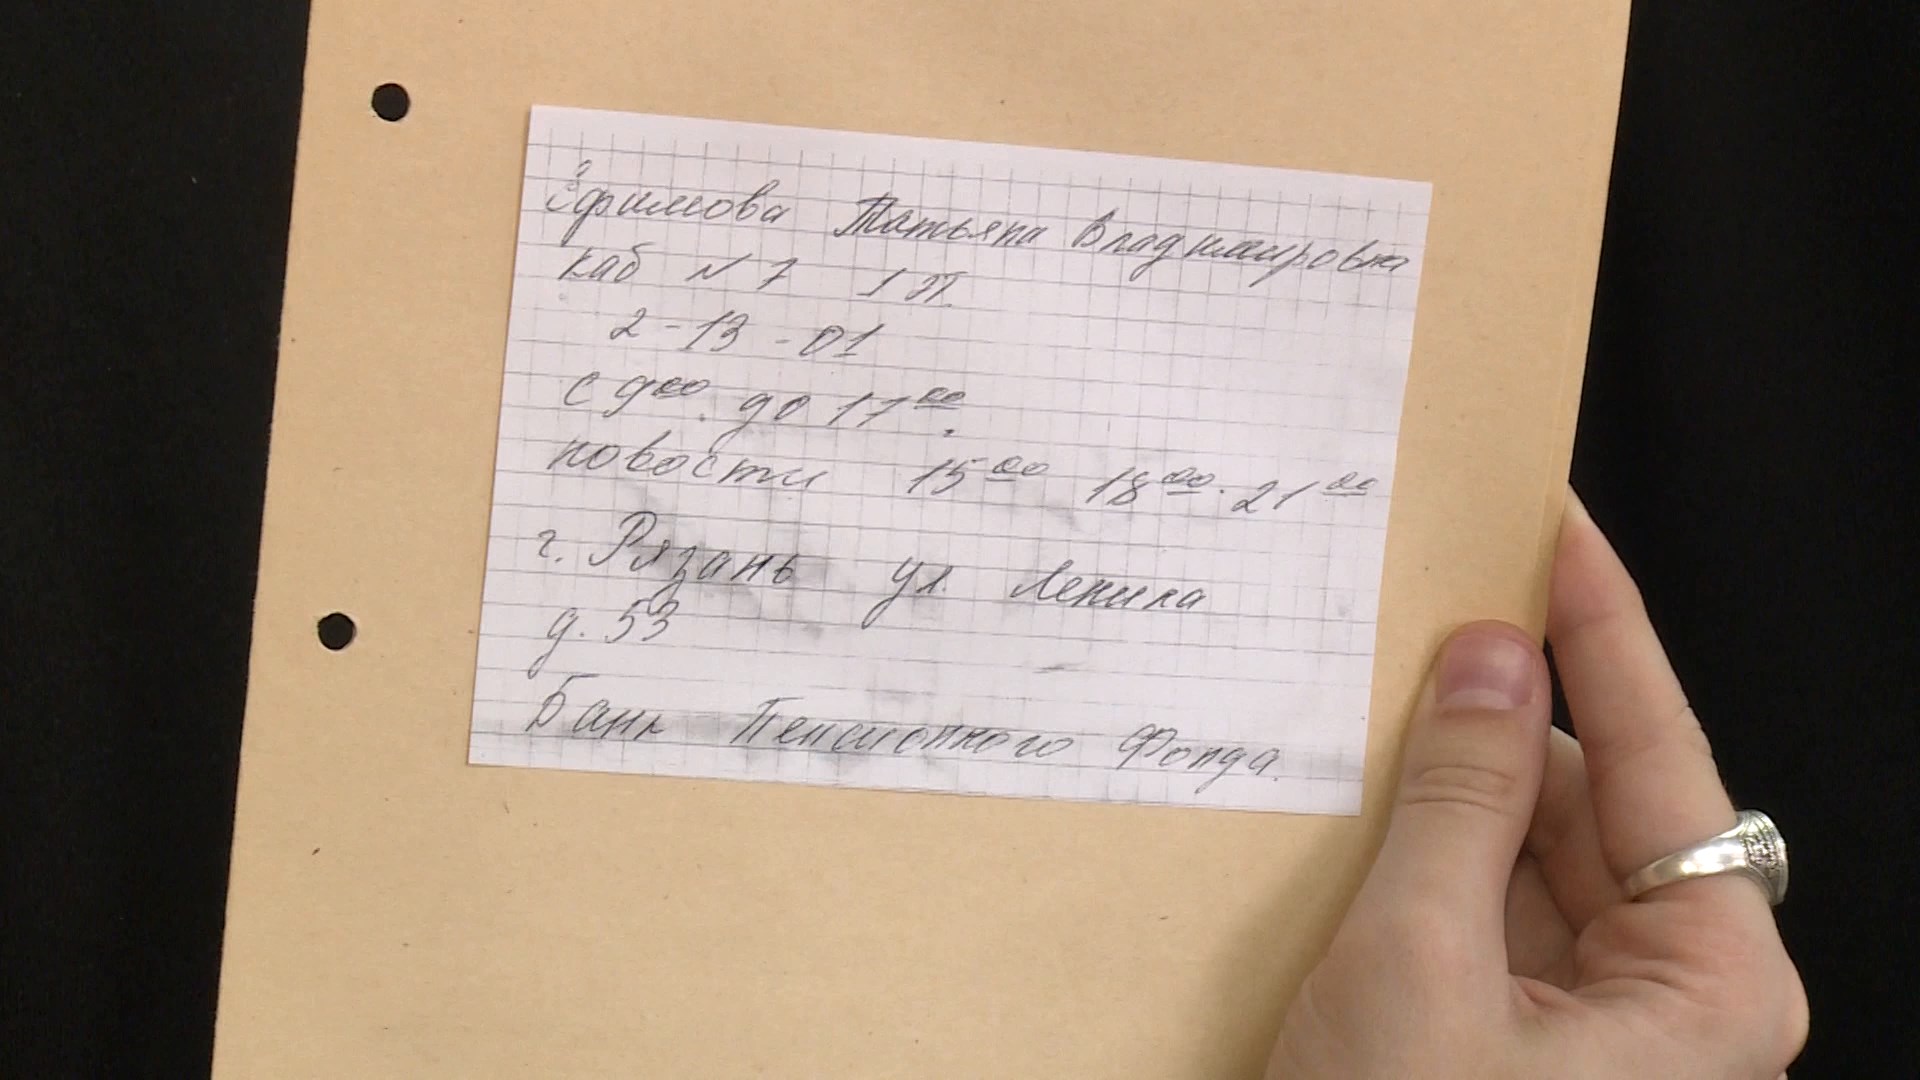 Ефимова Татьяна Владимировна
каб № 7 1 п.
2-13-01
с 9 00. до 17 00.
новости 15 00 18 00. 21 00
г. Рязань ул. Ленина
д. 53
Банк Пенсионного Фонда.